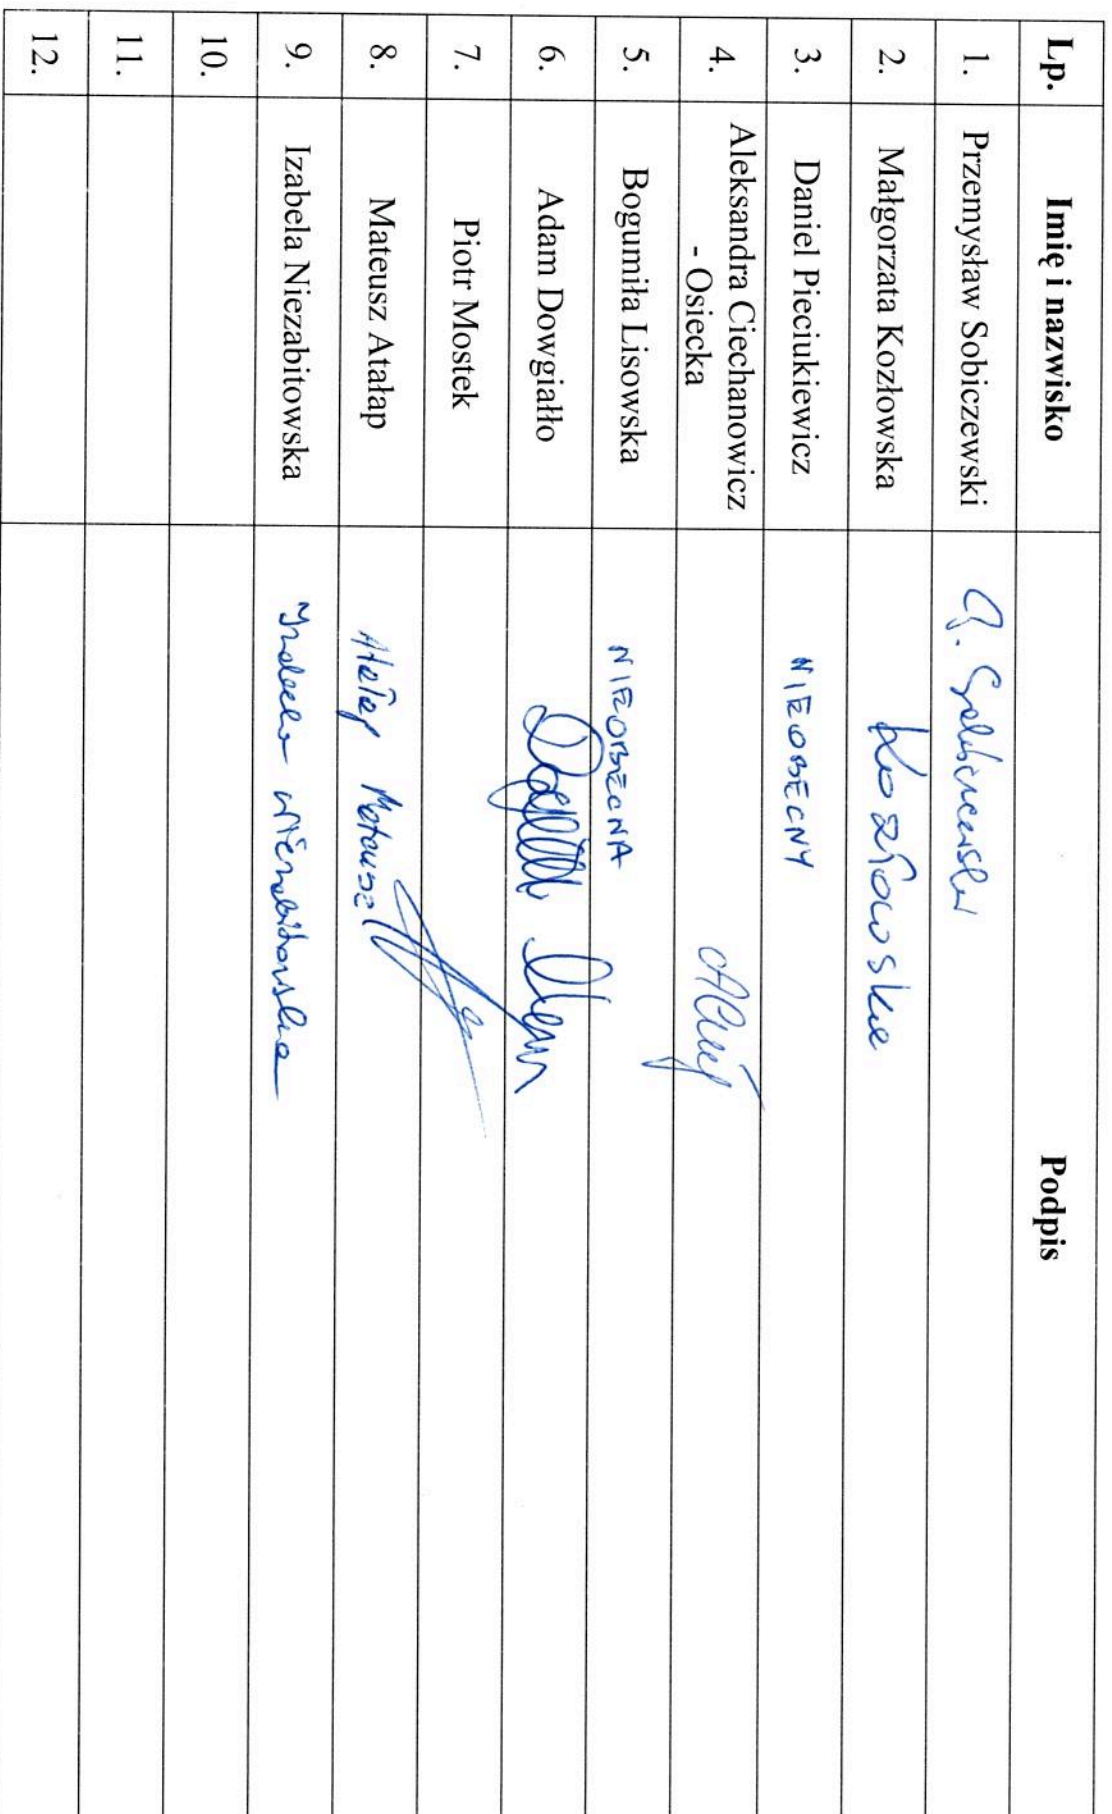 Lp. Imię i nazwisko Podpis
1. Przemysław Sobiczewski
2. Małgorzata Kozłowska Kozłowska
3. Daniel Pieciukiewicz NIEOBECNY
4. Aleksandra Ciechanowicz
- Osiecka
5. Bogumiła Lisowska NIEOBECNA
6. Adam Dowgiałło
7. Piotr Mostek
8. Mateusz Atałap Atałap Mateusz
9. Izabela Niezabitowska Izabela Niezabitowska
10.
11.
12.